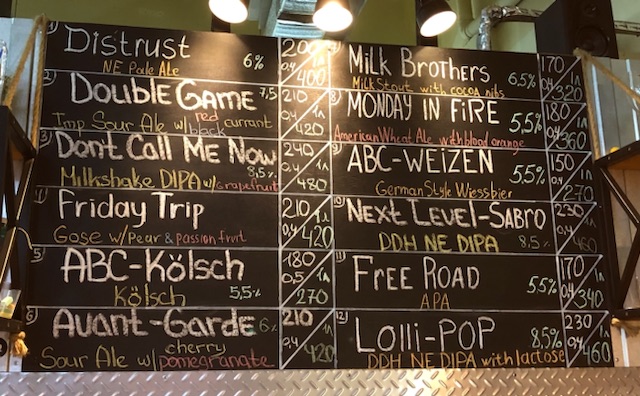 1) Distrust 6% 200 0,4 1л 400
NE Pale Ale
2) Double Game 7,5 210 0,4 1л 420
Imp Sour Ale w/ red black currant
3) Dont Call Me Now 8,5% 240 0,4 1л 480
Milkshake DIPA w/ grapefruit
4) Friday Trip 210 0,4 1л 420
Gose w/ Pear & passion fruit
5) ABC-Kölsch 180 0,5 1л 270
Kölsch 5,5%
6) Avant-Garde 6% 210 0,4 1л 420
Sour Ale w/ cherry pomegranate
Milk Brothers 6.5% 170 0,4 1л 320
Milk Stout with cocoa nibs
8) Monday in Fire 5,5% 180 0,4 1л 360
American Wheat Ale with blood orange
9) ABC-Weizen 5,5% 150 1л 270
German Style Wiessbier
10) Next Level-Sabro 230 0,4 1л 460
DDH NE DIPA 8,5%
11) Free Road 5,5% 170 0,4 1л 340
APA
12) Lolli-Pop 8,5% 230 0,4 1л 460
DDH NE DIPA with lactose